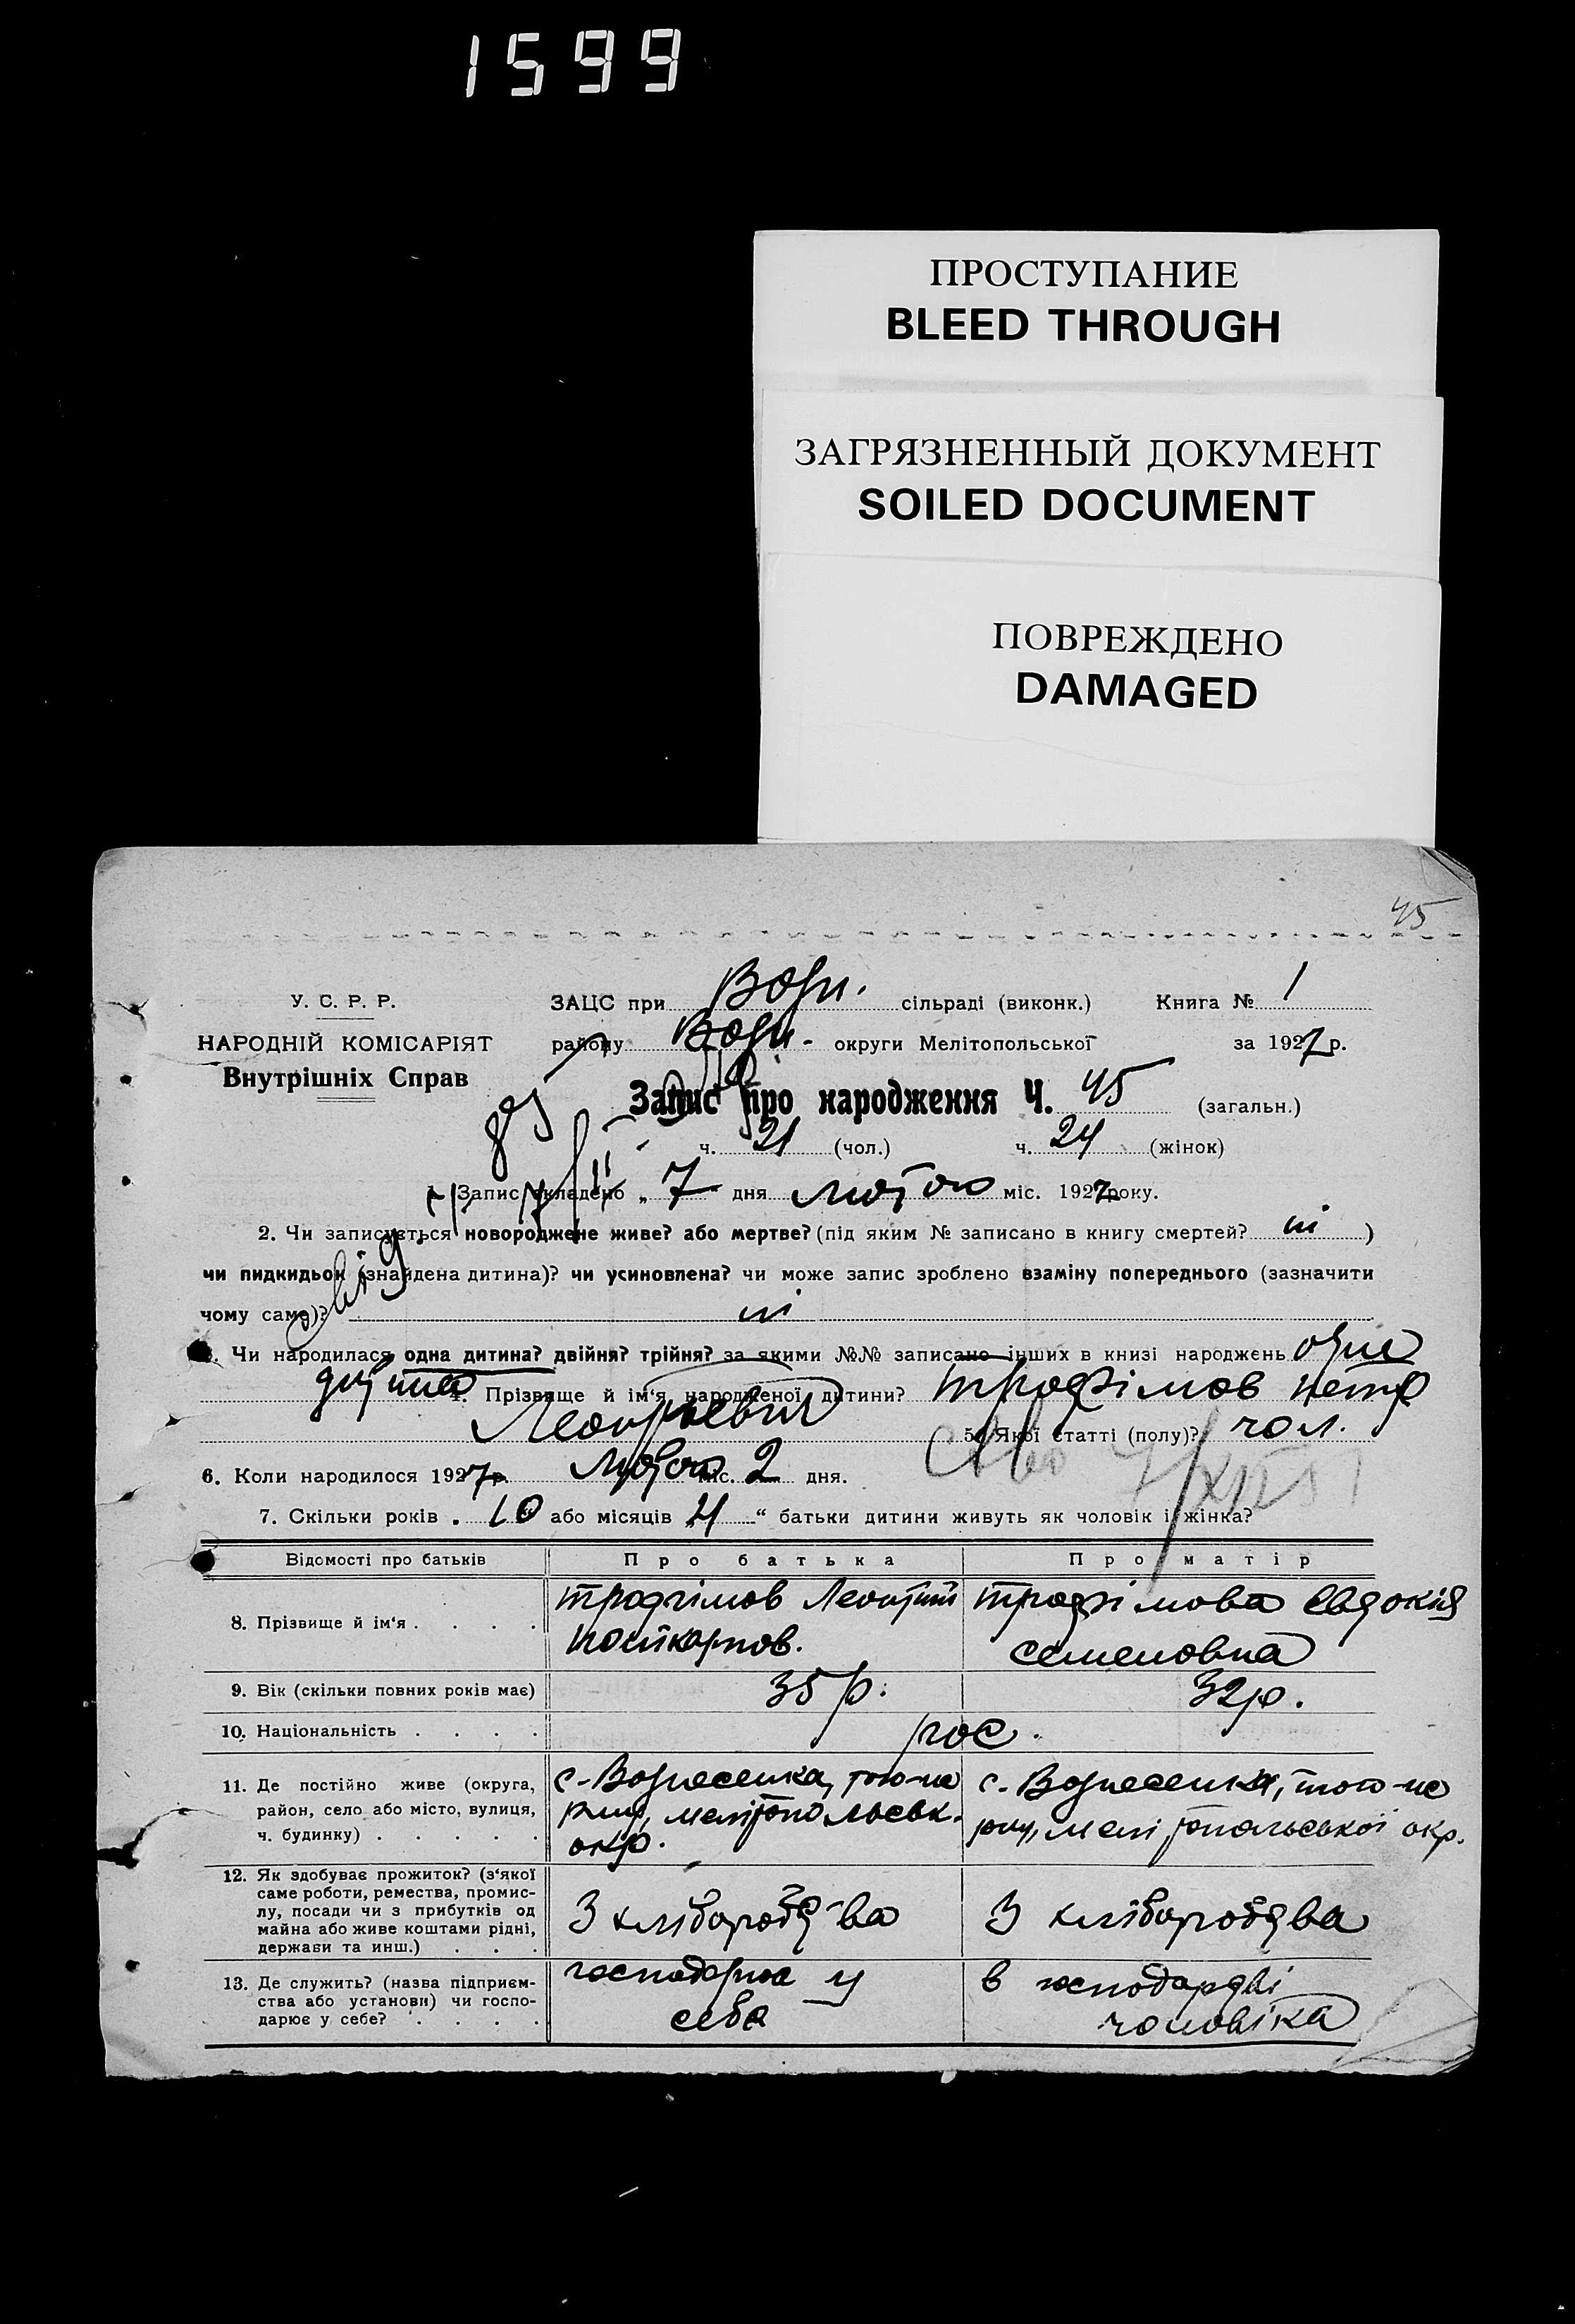 1599
ПРОСТУПАНИЕ
BLEED THROUGH
ЗАГРЯЗНЕННЫЙ ДОКУМЕНТ
SOILED DOCUMENT
ПОВРЕЖДЕНО
DAMAGED
45
У. С. Р. Р.
НАРОДНІЙ КОМІСАРІЯТ
Внутрішніх Справ
ЗАЦС при Возн. сільраді (виконк.) Книга № 1
району Возн. округи Мелітопольської за 1927 р.
Запис про народження Ч. 45 (загальн.)
ч. 21 (чол.) ч. 24 (жінок)
1. Запис складено „7“ дня лютого міс. 1927 року.
2. Чи записується новороджене живе? або мертве? (під яким № записано в книгу смертей? ні)
чи пидкидьок (знайдена дитина)? чи усиновлена? чи може запис зроблено взаміну попереднього (зазначити
чому саме)? ні
3. Чи народилася одна дитина? двійня? трійня? за якими №№ записано інших в книзі народжень одна
дитина 4. Прізвище й ім'я народженої дитини? Трофімов Петр
Леонтьевич 5. Якої статті (полу)? чол.
6. Коли народилося 1927 р. лютого міс. 2 дня.
7. Скільки років „10“ або місяців „4“ батьки дитини живуть як чоловік і жінка?
Відомості про батьків Про батька Про матір
8. Прізвище й ім'я . . . . Трофімов Леонтий Поликарпов. Трофімова Евдокія Семеновна
9. Вік (скільки повних років має) 35 р. 32 р.
10. Національність . . . . рос.
11. Де постійно живе (округа, район, село або місто, вулиця, ч. будинку) . . . . . с. Вознесенка, того-не р-ну, мелітопольськ. окр. с. Вознесенка, того-не р-ну, мелітопольської окр.
12. Як здобуває прожиток? (з'якої саме роботи, ремества, промислу, посади чи з прибутків од майна або живе коштами рідні, держави та инш.) . . . З хліборобства З хліборобства
13. Де служить? (назва підприємства або установи) чи господарює у себе? . . . . господарює у себе в господарстві чоловіка